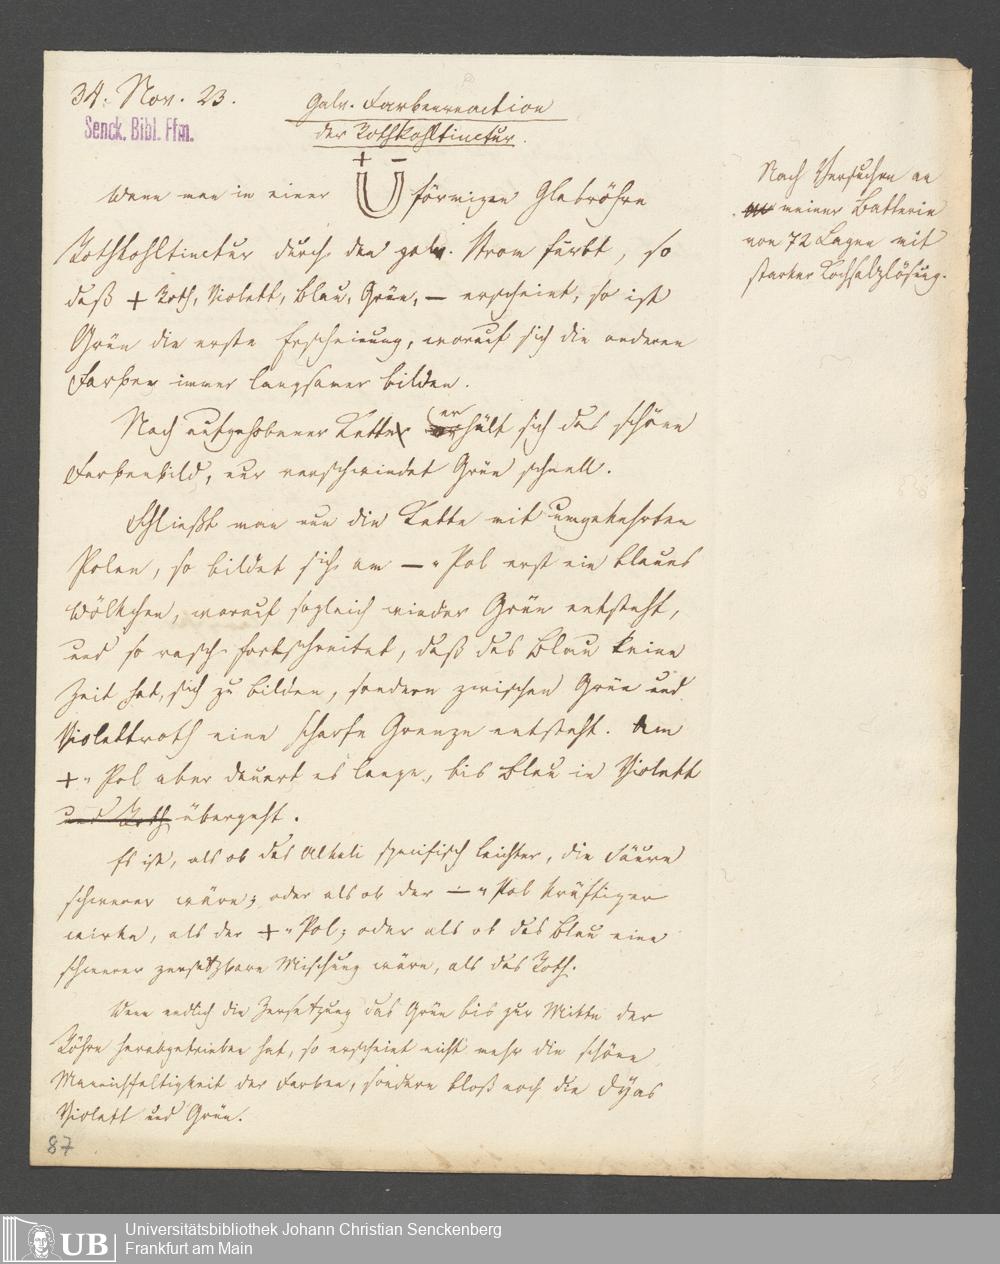 34. Nov. 23.
Senck. Bibl. Ffm.
Galv. Farbenreaction
der Rothkohltinctur.
+ −
Wenn man in einer U förmigen Glasröhre
Rothkohltinctur durch den galv. Strom färbt, so
daß + Roth, Violett, Blau, Grün, − erscheint, so ist
Grün die erste Erscheinung, worauf sich die anderen
Farben immer langsamer bilden.
Nach aufgehobener Kette erhält sich das schöne
Farbenbild, nur verschwindet Grün schnell.
Schließt man nun die Kette mit umgekehrten
Polen, so bildet sich am − Pol erst ein blaues
Wölkchen, worauf sogleich wieder Grün entsteht,
und so rasch fortschreitet, daß das Blau keine
Zeit hat, sich zu bilden, sondern zwischen Grün und
Violettroth eine scharfe Grenze entsteht. Am
+ Pol aber dauert es lange, bis Blau in Violett
und Roth übergeht.
Es ist, als ob das Alkali specifisch leichter, die Säure
schwerer wäre; oder als ob der − Pol kräftiger
wirke, als der + Pol; oder als ob das Blau eine
schwerer zersetzbare Mischung wäre, als das Roth.
Wenn endlich die Zersetzung das Grün bis zur Mitte der
Röhre herabgetrieben hat, so erscheint nicht mehr die schöne
Mannichfaltigkeit der Farben, sondern bloß noch die Dyas
Violett und Grün.
87
Nach Versuchen an
meiner Batterie
von 72 Lagen mit
starker Kochsalzlösung.
UB
Universitätsbibliothek Johann Christian Senckenberg
Frankfurt am Main